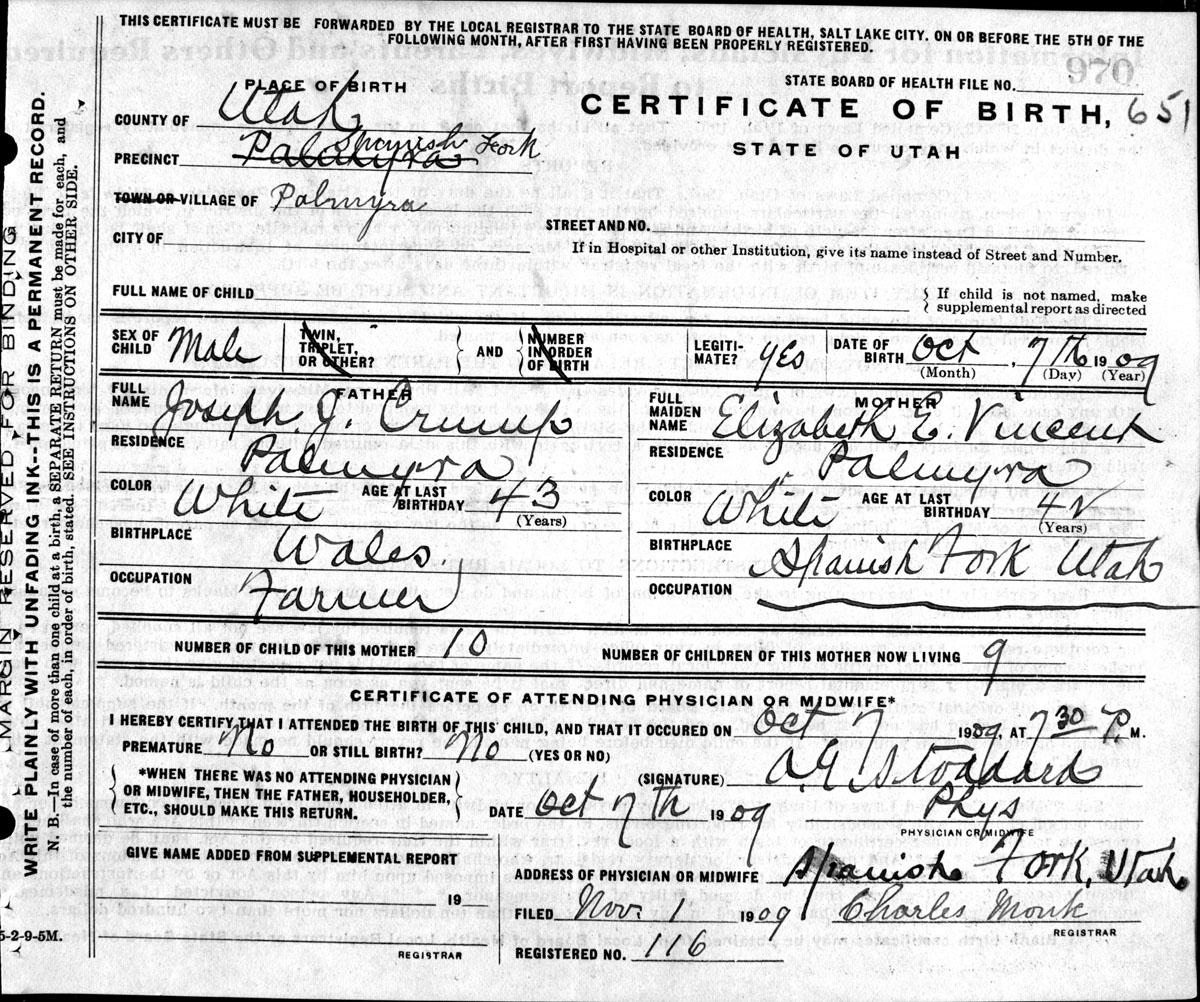 THIS CERTIFICATE MUST BE FORWARDED BY THE LOCAL REGISTRAR TO THE STATE BOARD OF HEALTH, SALT LAKE CITY. ON OR BEFORE THE 5TH OF THE
FOLLOWING MONTH, AFTER FIRST HAVING BEEN PROPERLY REGISTERED.
MARGIN RESERVED FOR BINDING
WRITE PLAINLY WITH UNFADING INK--THIS IS A PERMANENT RECORD.
N. B.—In case of more than one child at a birth, a SEPARATE RETURN must be made for each, and
the number of each, in order of birth, stated. SEE INSTRUCTIONS ON OTHER SIDE.
PLACE OF BIRTH
STATE BOARD OF HEALTH FILE NO.
970
CERTIFICATE OF BIRTH, 651
STATE OF UTAH
COUNTY OF Utah
PRECINCT Palmyra Spanish Fork
TOWN OR VILLAGE OF Palmyra
STREET AND NO.
CITY OF
If in Hospital or other Institution, give its name instead of Street and Number.
FULL NAME OF CHILD
{ If child is not named, make
supplemental report as directed
SEX OF CHILD Male
TWIN, TRIPLET, OR OTHER?
AND
NUMBER IN ORDER OF BIRTH
LEGITIMATE? yes
DATE OF BIRTH Oct, 7th 1909
(Month) (Day) (Year)
FATHER
FULL NAME Joseph J. Crump
RESIDENCE Palmyra
COLOR White AGE AT LAST BIRTHDAY 43
(Years)
BIRTHPLACE Wales
OCCUPATION Farmer
MOTHER
FULL MAIDEN NAME Elizabeth E. Vincent
RESIDENCE Palmyra
COLOR White AGE AT LAST BIRTHDAY 42
(Years)
BIRTHPLACE Spanish Fork Utah
OCCUPATION
NUMBER OF CHILD OF THIS MOTHER 10
NUMBER OF CHILDREN OF THIS MOTHER NOW LIVING 9
CERTIFICATE OF ATTENDING PHYSICIAN OR MIDWIFE*
I HEREBY CERTIFY THAT I ATTENDED THE BIRTH OF THIS CHILD, AND THAT IT OCCURED ON Oct 7 1909, AT 7 30 P. M.
PREMATURE No OR STILL BIRTH? No (YES OR NO)
*WHEN THERE WAS NO ATTENDING PHYSICIAN
OR MIDWIFE, THEN THE FATHER, HOUSEHOLDER,
ETC. SHOULD MAKE THIS RETURN.
(SIGNATURE) Stoddard
DATE Oct 7th 1909 Phys
PHYSICIAN OR MIDWIFE
GIVE NAME ADDED FROM SUPPLEMENTAL REPORT
19
REGISTRAR
ADDRESS OF PHYSICIAN OR MIDWIFE Spanish Fork, Utah
FILED Nov. 1909 Charles Monk
REGISTRAR
REGISTERED NO. 116
5-2-9-5M.